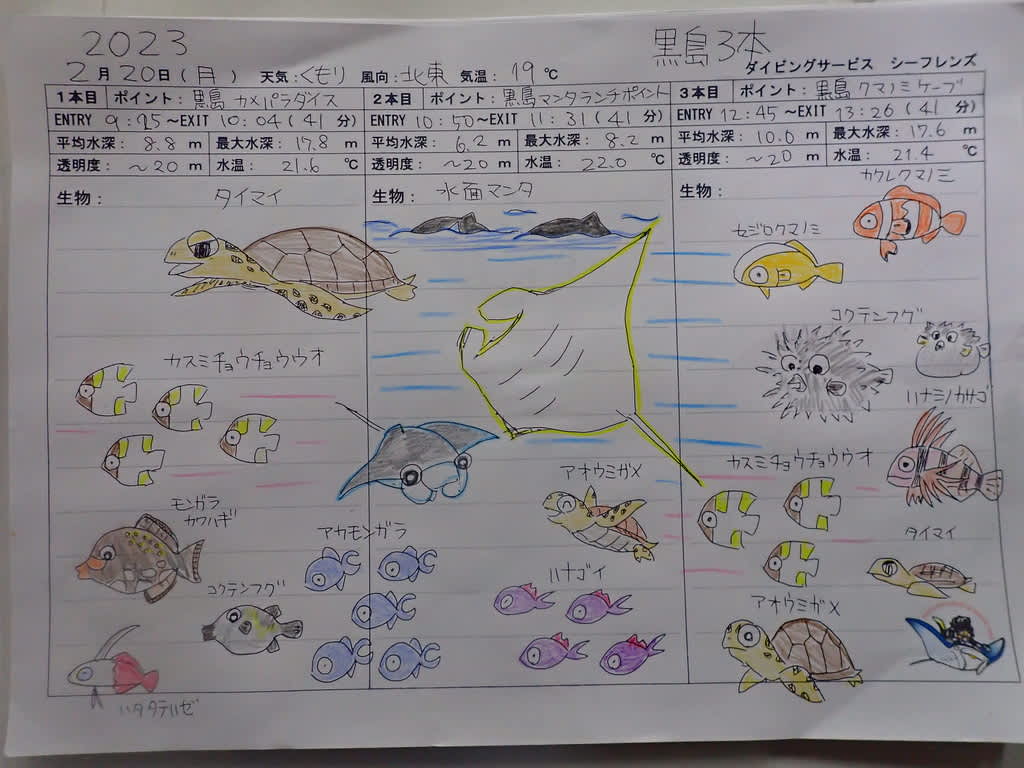 2023
黒島3本
2月20日(月) 天気:くもり 風向:北東 気温:19℃
ダイビングサービス シーフレンズ
1本目 ポイント:黒島 カメパラダイス
ENTRY 9:25~EXIT 10:04(41分)
平均水深: 8.8 m 最大水深: 17.8 m
透明度: ~20 m 水温: 21.6 ℃
生物:
タイマイ
カスミチョウチョウウオ
モンガラ
カワハギ
コクテンフグ
ハタタテハゼ
2本目 ポイント:黒島マンタランチポイント
ENTRY 10:50~EXIT 11:31(41分)
平均水深: 6.2 m 最大水深: 8.2 m
透明度: ~20 m 水温: 22.0 ℃
生物:
水面マンタ
アオウミガメ
アカモンガラ
ハナゴイ
3本目 ポイント:黒島 クマノミケーブ
ENTRY 12:45~EXIT 13:26(41分)
平均水深: 10.0 m 最大水深: 17.6 m
透明度: ~20 m 水温: 21.4 ℃
生物:
カクレクマノミ
セジロクマノミ
コクテンフグ
ハナミノカサゴ
カスミチョウチョウウオ
タイマイ
アオウミガメ